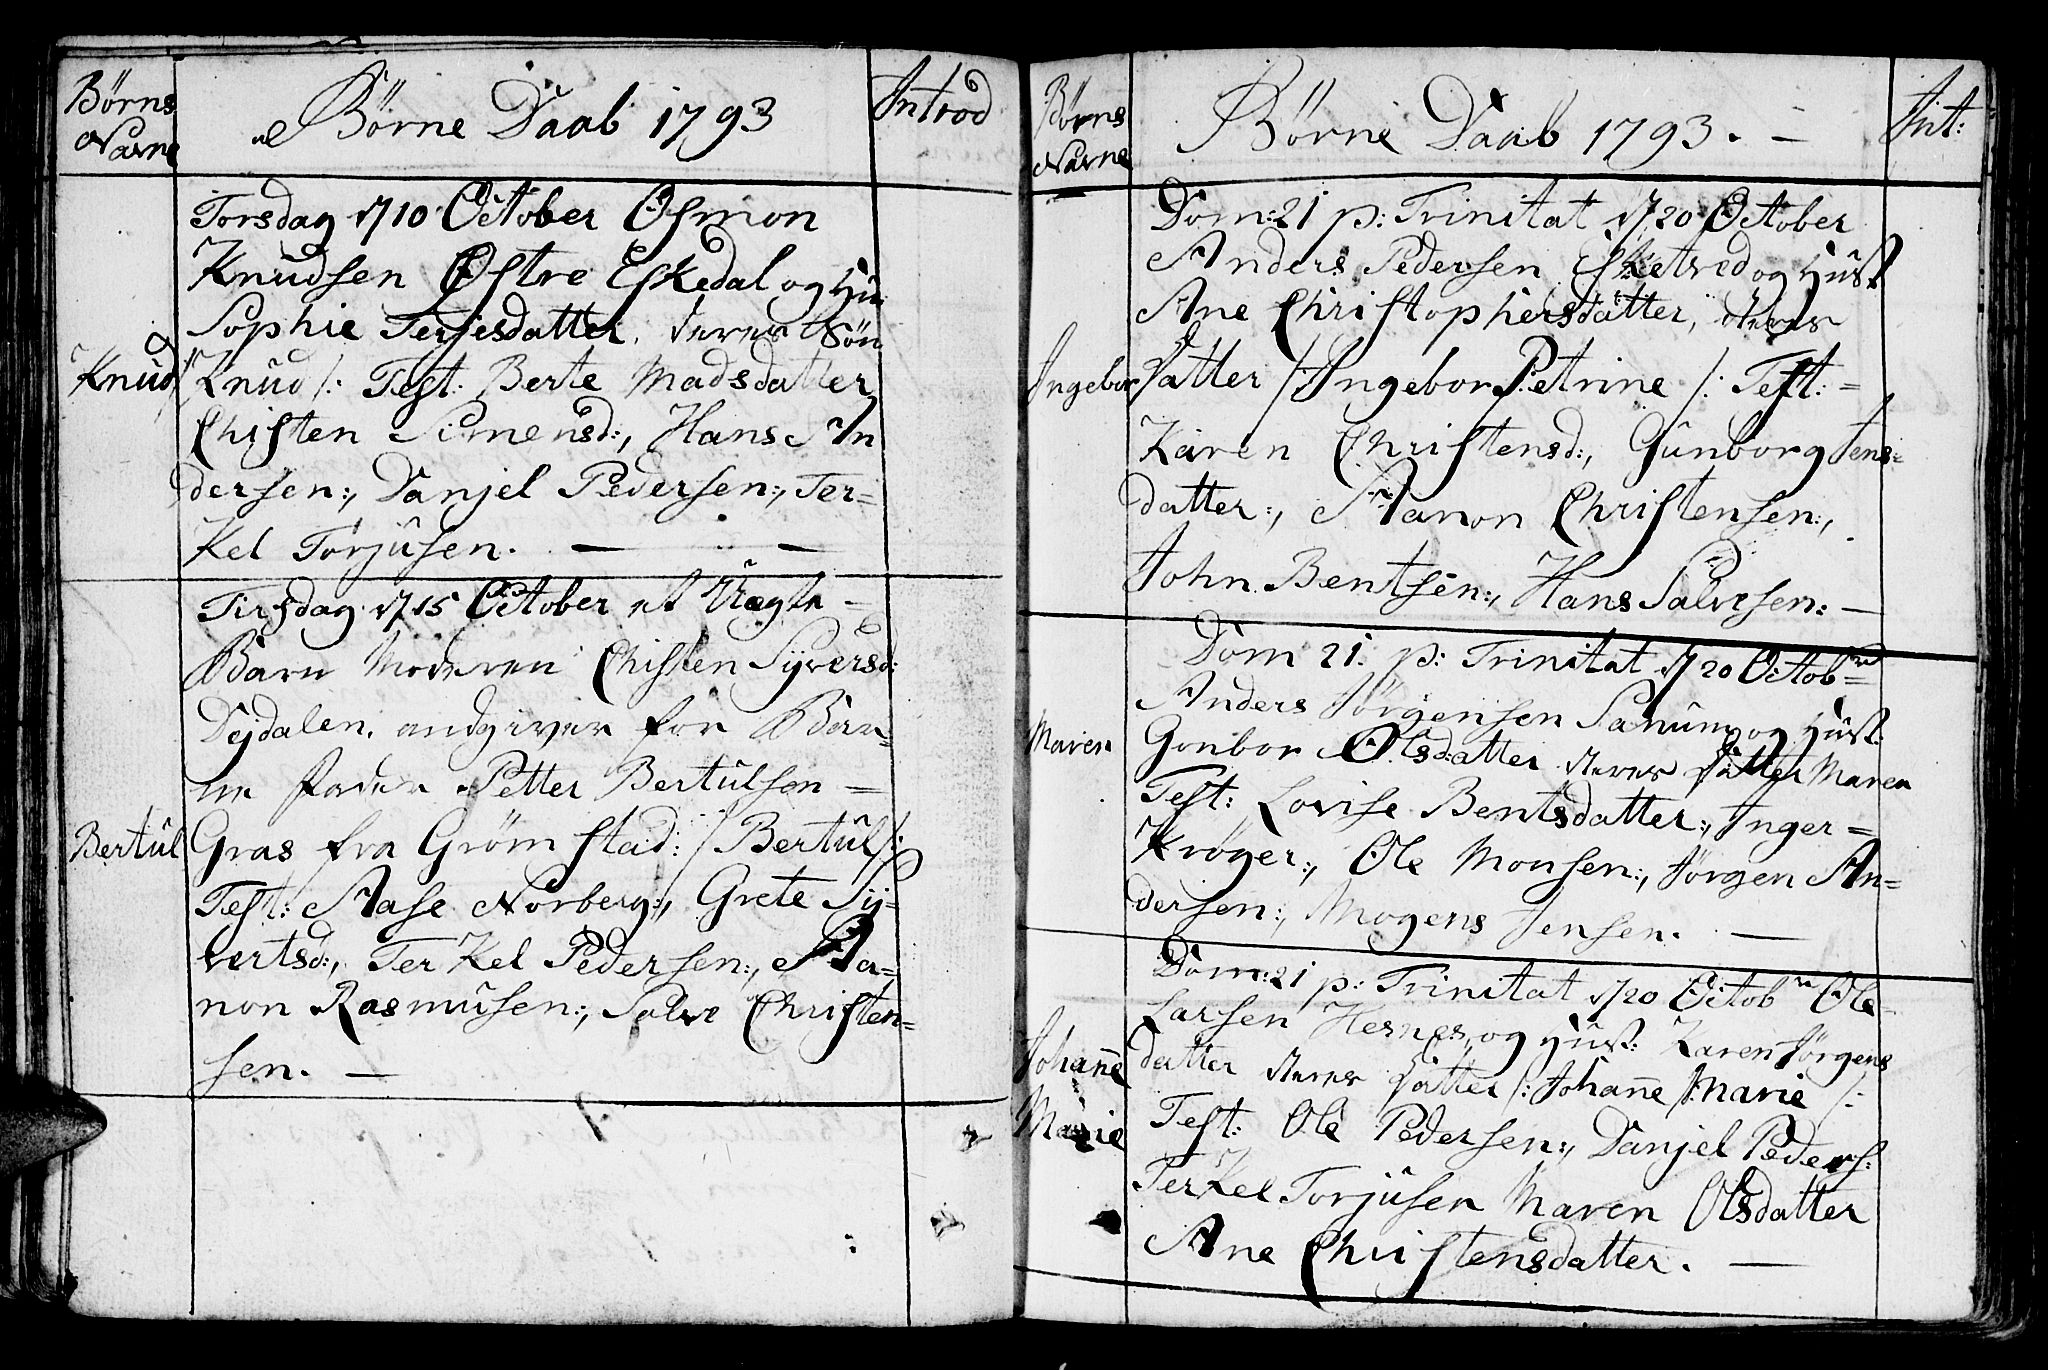 Børns
Navne
Børne Daab 1793
Introd
Torsdag d 10 October Osmon
Knudsen Østre Eskedal og Hu:
Sophie Terjesdatter. deres Søn
Knud
/: Knud /: Test: Berte Madsdatter
Chisten Simensd:, Hans An
dersen:, Danjel Pedersen:, Ter=
Kel Torjusen. —
Tirsdag d 15 October et Uægte =
Barn Moderen Chisten Syversd:
Dejdalen. andgiver for Bar=
ne Fader Petter Bertulsen =
Bertul
Gras fra Grømstad: /: Bertul /:
Test: Aase Norberg:, Grete Sy=
vertsd:, TerKel Pedersen:, Aa=
non Rasmusen:, Salve Christen=
sen. —
Børns
Navne
Børne Daab 1793. —
Int:
Dom: 21 p: Trinitat d 20 October
Anders Pedersen Eftetved og Hust
Ane Christophersdatter, deres
Ingebor
Datter /: Ingebor Petrine /: Test: =
Karen Christensd:, Gunborg Jens=
datter:, Aanon Christensen:,
John Bentsen:, Hans Salvesen: —
Dom 21. p: Trinitat d 20 Octobr=
Anders Jørgensen Sanum og Hust
Maren
Gonbor Olsdatter deres Datter Maren
Test: Lovise Bentsdatter:, Inger =
Krøger:, Ole Monsen:, Jørgen An=
dersen:, Mogens Jensen. —
Dom: 21 p: Trinitat d 20 Octobr Ole
Larsen Hesnes og Hust: Karen Jørgens
Johañe
datter deres Datter /: Johañe Marie /:
Marie
Test: Ole Pedersen:, Danjel Peders:
TerKel Torjusen Maren Olsdatter
Ane Christensdatter. —